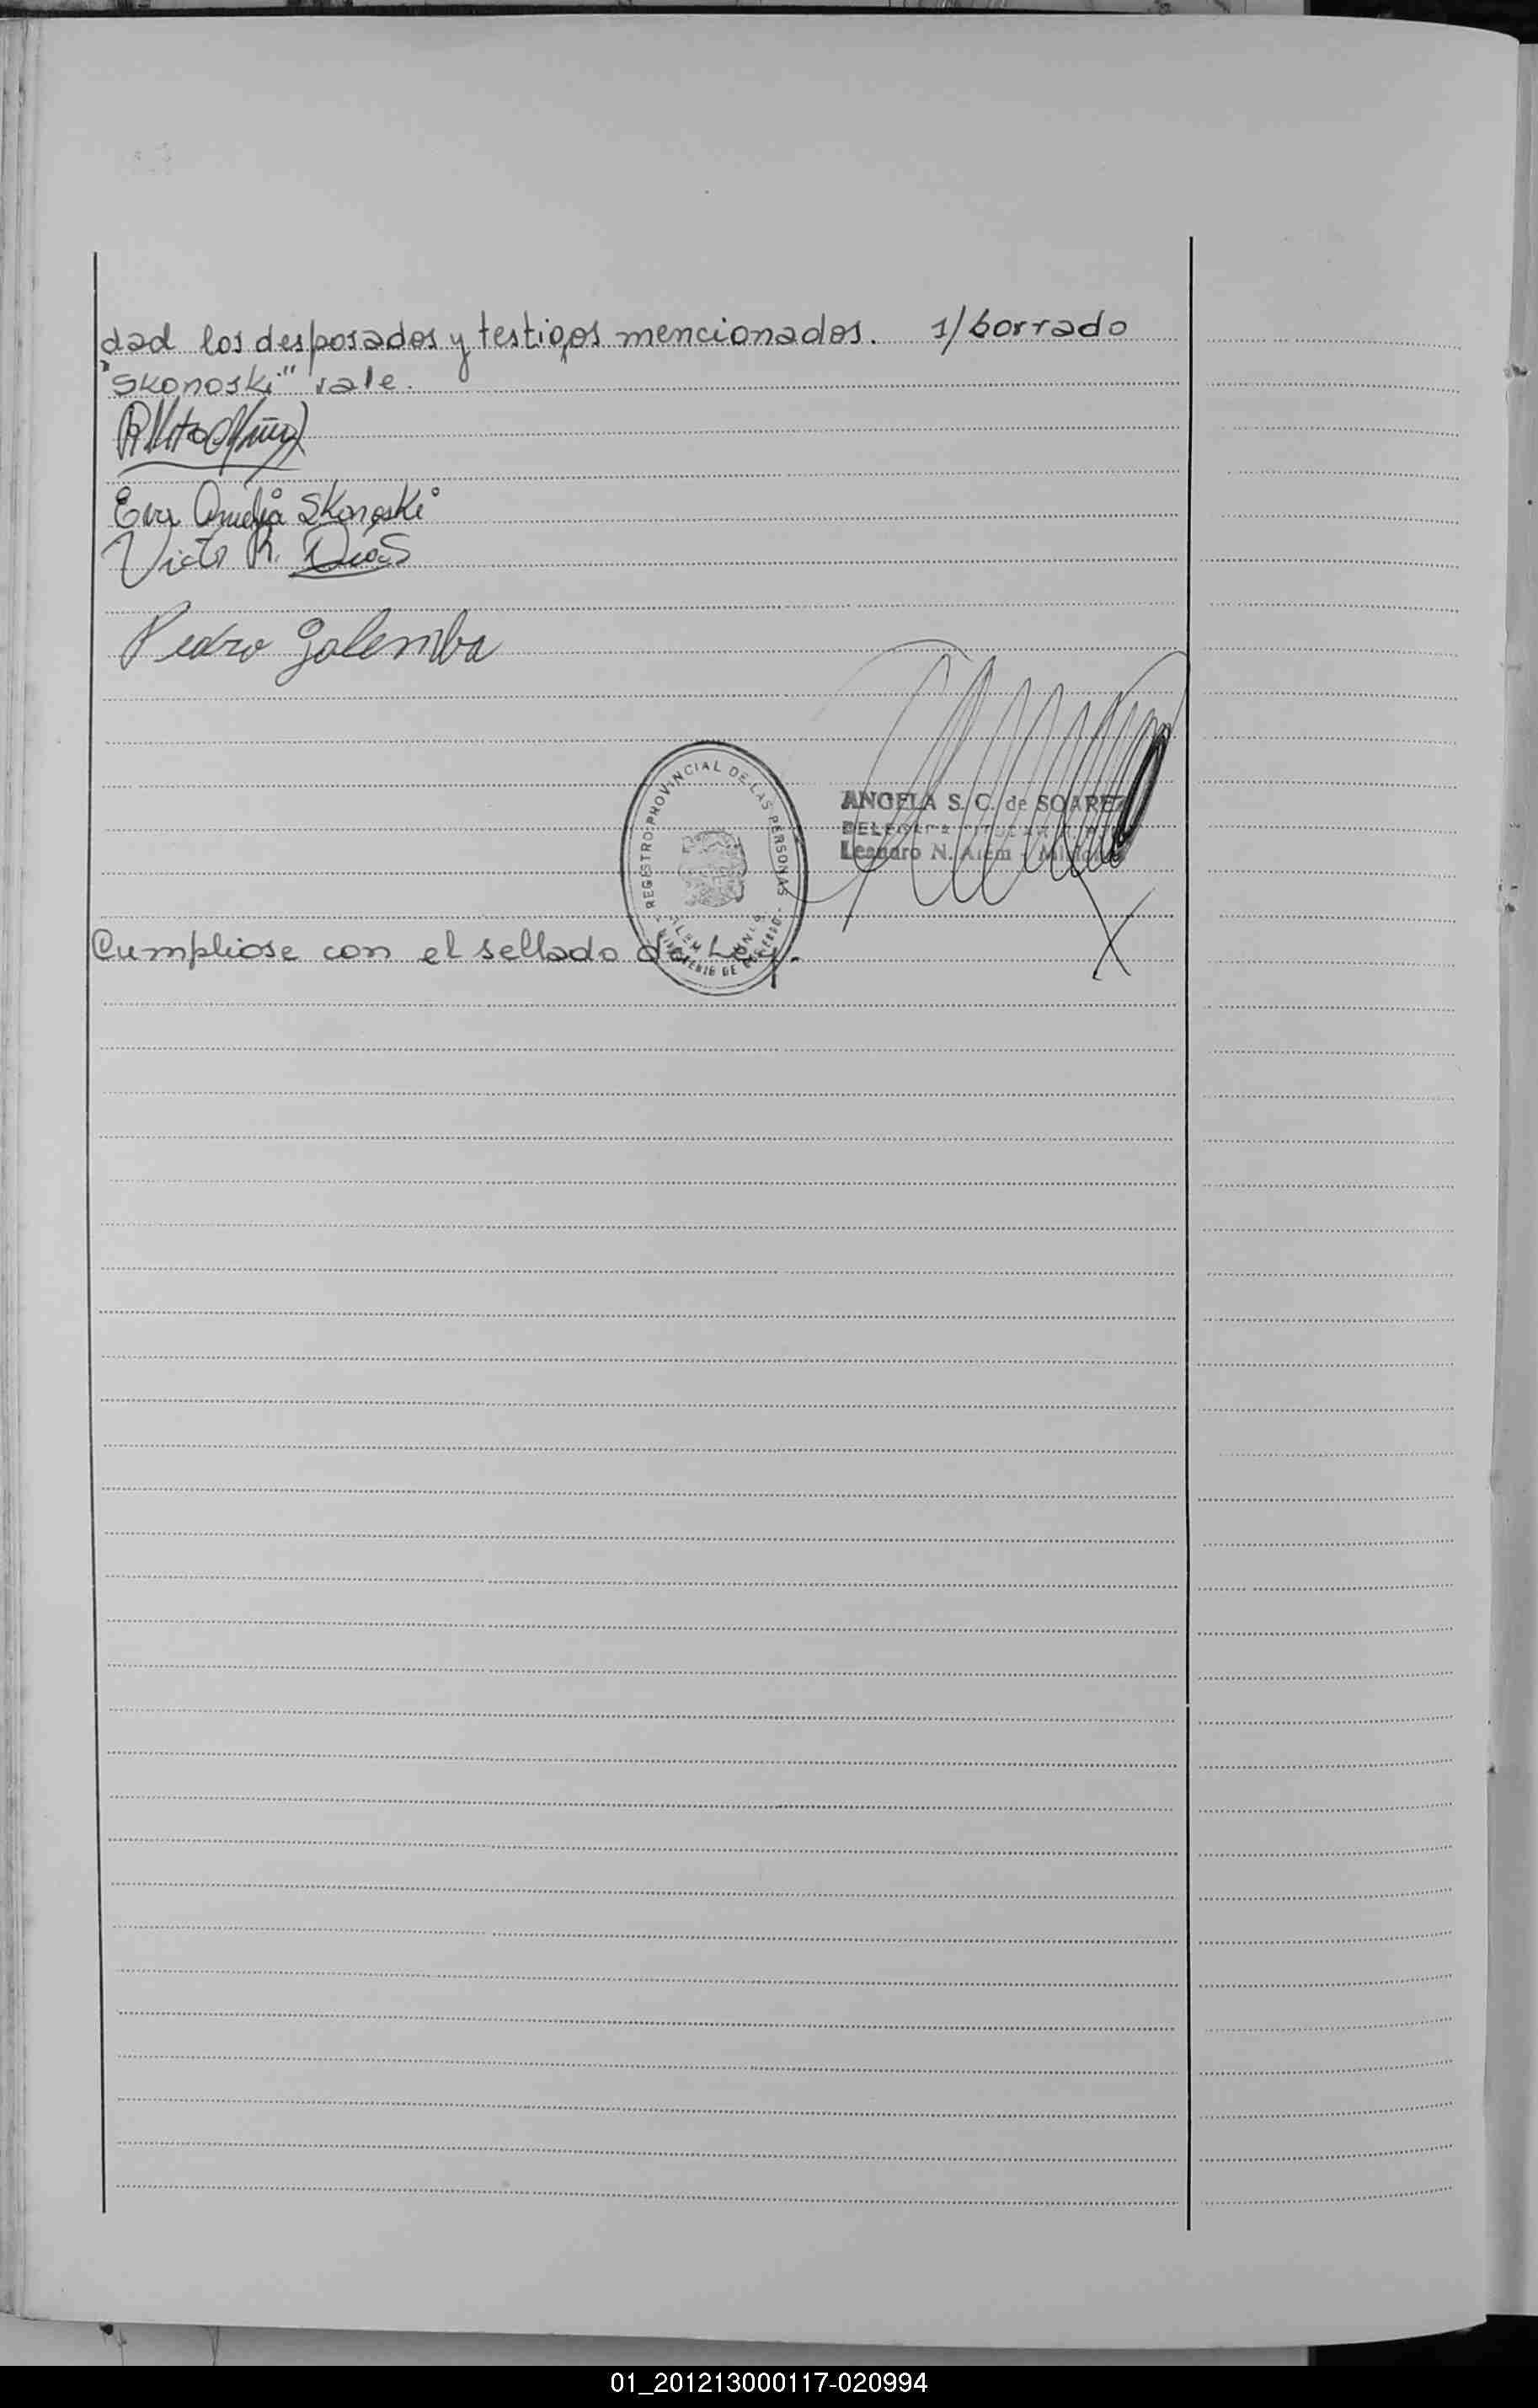 dad los desposados y testigos mencionados. 1/borrado
"Skonoski" vale.
Eva Amelja Skonoski
Victor R. Dias
Pedro Golemba
REGISTRO PROVINCIAL DE LAS PERSONAS
ANGELA S. C. de SOAREZ
Leandro N. Alem -
Cumpliose con el sellado de Ley.
01_201213000117-020994